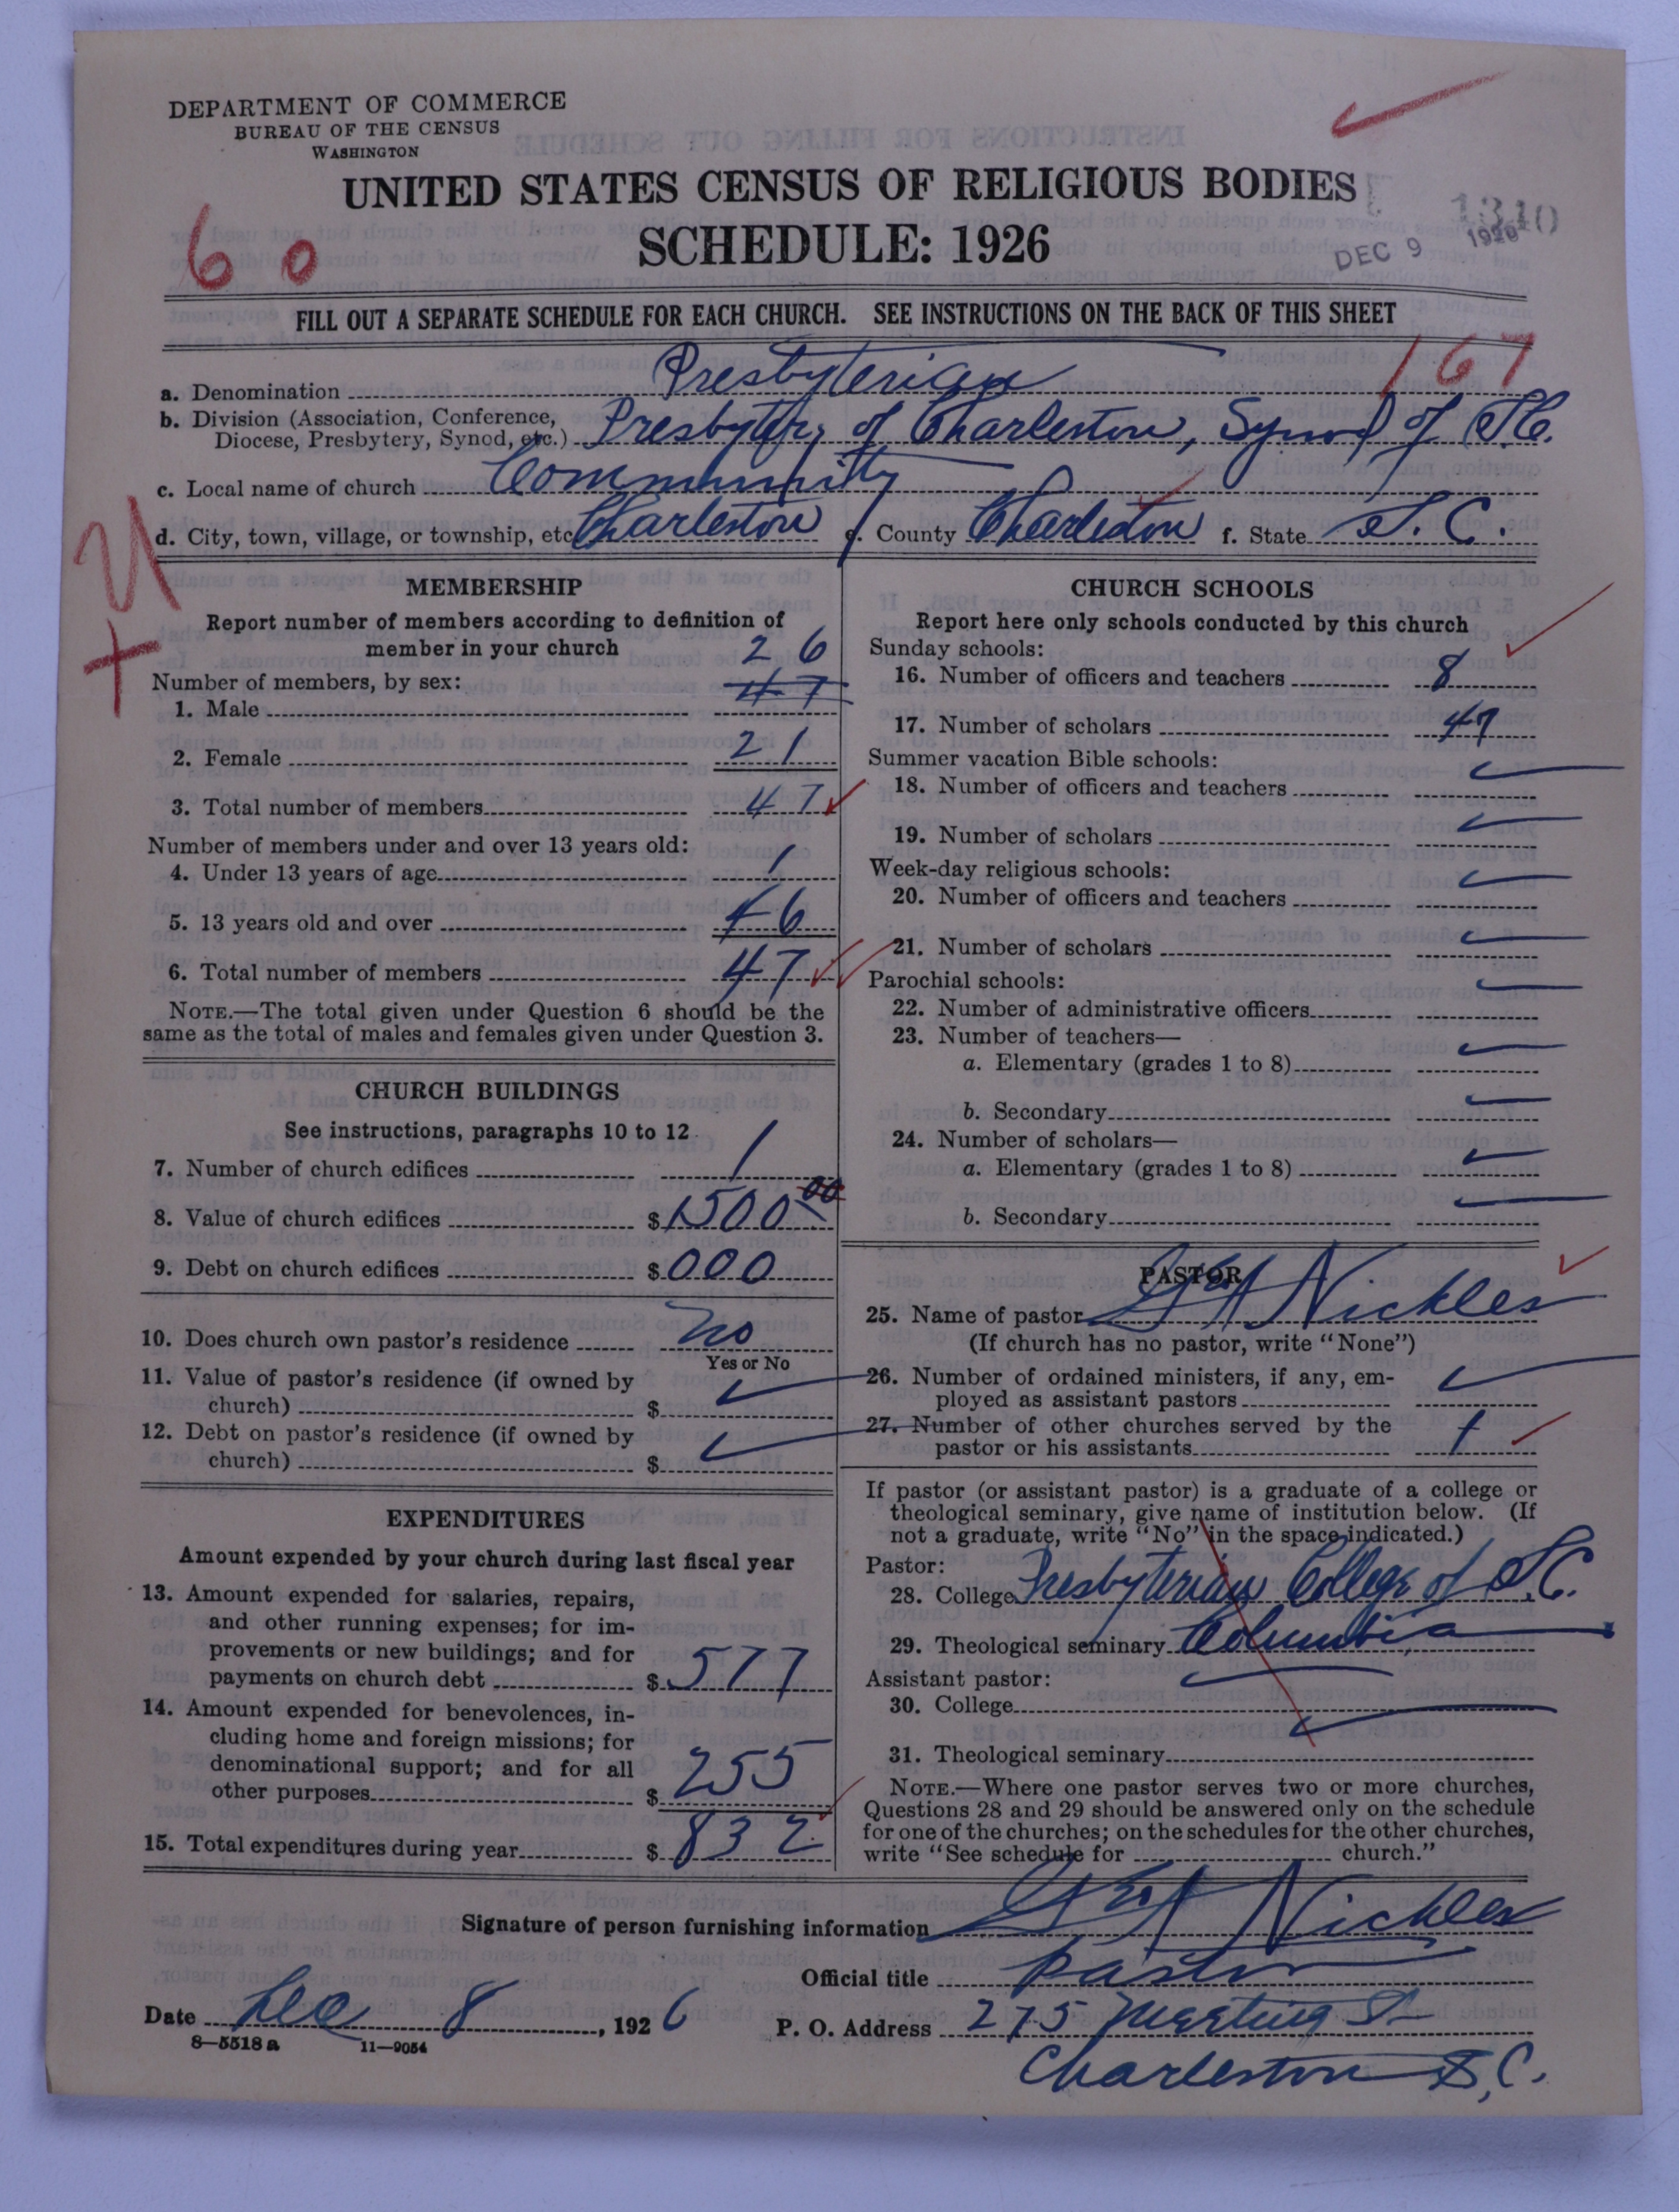 DEPARTMENT OF COMMERCE
BUREAU OF THE CENSUS
WASHINGTON
UNITED STATES CENSUS OF RELIGIOUS BODIES
SCHEDULE: 1926
60
DEC 9 1926
FILL OUT A SEPARATE SCHEDULE FOR EACH CHURCH. SEE INSTRUCTIONS ON THE BACK OF THIS SHEET
167
a. Denomination Presbyterian
b. Division (Association, Conference, Diocese, Presbytery, Synod, etc.) Presbytery of Charleston, Synod of S.C.
c. Local name of church Community
d. City, town, village, or township, etc. Charleston e. County Charleston f. State S. C.
MEMBERSHIP
Report number of members according to definition of
member in your church
26
Number of members, by sex:
1. Male 47
2. Female 21
3. Total number of members 47
Number of members under and over 13 years old:
4. Under 13 years of age 1
5. 13 years old and over 46
6. Total number of members 47
NOTE.—The total given under Question 6 should be the
same as the total of males and females given under Question 3.
CHURCH BUILDINGS
See instructions, paragraphs 10 to 12
7. Number of church edifices 1
8. Value of church edifices $ 1500 00
9. Debt on church edifices $ 000
10. Does church own pastor's residence no
Yes or No
11. Value of pastor's residence (if owned by
church) $
12. Debt on pastor's residence (if owned by
church) $
EXPENDITURES
Amount expended by your church during last fiscal year
13. Amount expended for salaries, repairs,
and other running expenses; for im-
provements or new buildings; and for
payments on church debt $ 577
14. Amount expended for benevolences, in-
cluding home and foreign missions; for
denominational support; and for all
other purposes $ 255
15. Total expenditures during year $ 832
CHURCH SCHOOLS
Report here only schools conducted by this church
Sunday schools:
16. Number of officers and teachers 8
17. Number of scholars 47
Summer vacation Bible schools:
18. Number of officers and teachers
19. Number of scholars
Week-day religious schools:
20. Number of officers and teachers
21. Number of scholars
Parochial schools:
22. Number of administrative officers
23. Number of teachers—
a. Elementary (grades 1 to 8)
b. Secondary
24. Number of scholars—
a. Elementary (grades 1 to 8)
b. Secondary
PASTOR
25. Name of pastor Nickles
(If church has no pastor, write "None")
26. Number of ordained ministers, if any, em-
ployed as assistant pastors
27. Number of other churches served by the
pastor or his assistants 1
If pastor (or assistant pastor) is a graduate of a college or
theological seminary, give name of institution below. (If
not a graduate, write "No" in the space indicated.)
Pastor:
28. College Presbyterian College of S.C.
29. Theological seminary Columbia
Assistant pastor:
30. College
31. Theological seminary
NOTE.—Where one pastor serves two or more churches,
Questions 28 and 29 should be answered only on the schedule
for one of the churches; on the schedules for the other churches,
write "See schedule for church."
Signature of person furnishing information Nickles
Official title pastor
Date Dec 8, 1926
P. O. Address 275 Meeting St
Charleston S.C.
8—5518a 11—9054